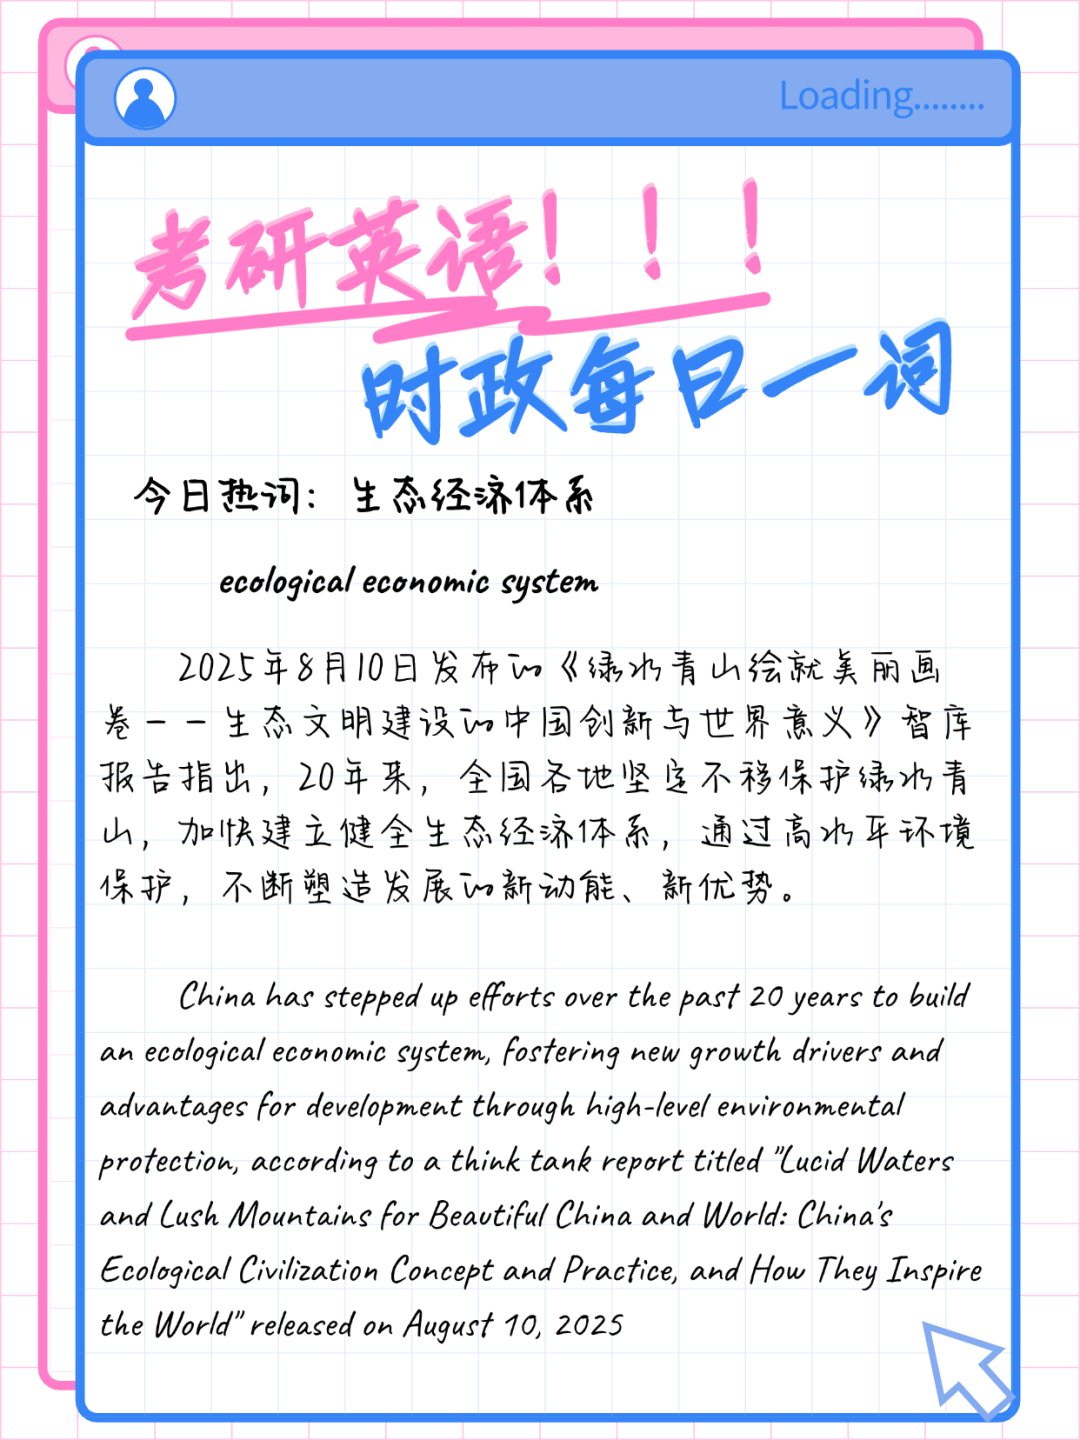 Loading........
考研英语！！！
时政每日一词
今日热词：生态经济体系
ecological economic system
2025年8月10日发布的《绿水青山绘就美丽画
卷——生态文明建设的中国创新与世界意义》智库
报告指出，20年来，全国各地坚定不移保护绿水青
山，加快建立健全生态经济体系，通过高水平环境
保护，不断塑造发展的新动能、新优势。
China has stepped up efforts over the past 20 years to build
an ecological economic system, fostering new growth drivers and
advantages for development through high-level environmental
protection, according to a think tank report titled "Lucid Waters
and Lush Mountains for Beautiful China and World: China's
Ecological Civilization Concept and Practice, and How They Inspire
the World" released on August 10, 2025